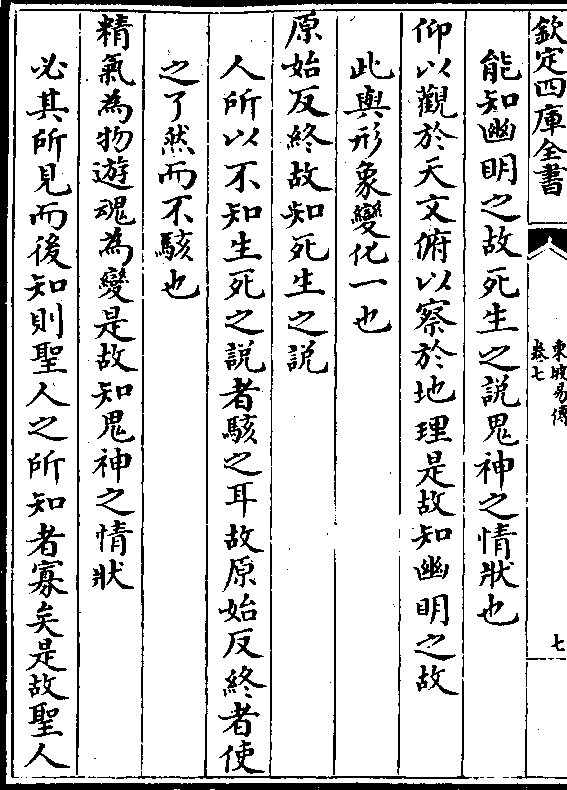 欽定四庫全書
東坡易傳
卷七
七
能知幽明之故死生之說鬼神之情狀也
仰以觀於天文俯以察於地理是故知幽明之故
此與形象變化一也
原始反終故知死生之說
人所以不知生死之說者駭之耳故原始反終者使
之了然而不駭也
精氣為物遊魂為變是故知鬼神之情狀
必其所見而後知則聖人之所知者寡矣是故聖人